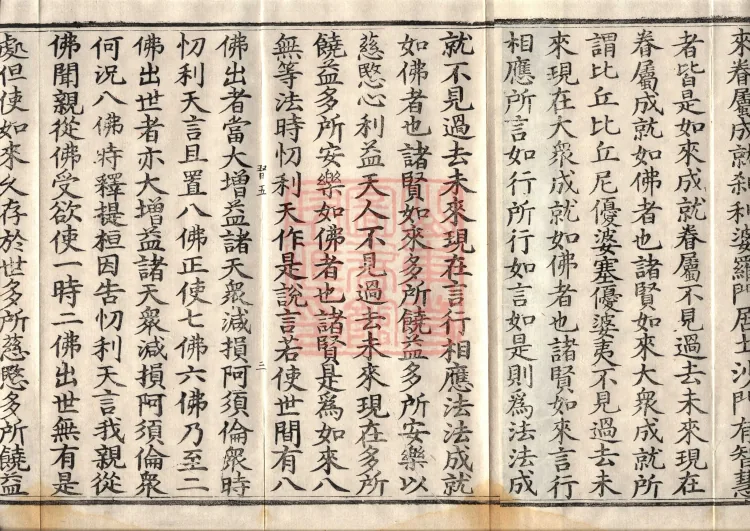 來眷屬成就刹利婆羅門居士沙門有智慧
者皆是如來成就眷屬不見過去未來現在
眷屬成就如佛者也諸賢如來大衆成就所
謂比丘比丘尼優婆塞優婆夷不見過去未
來現在大衆成就如佛者也諸賢如來言行
相應所言如行所行如言如是則爲法法成
就不見過去未來現在言行相應法法成就
如佛者也諸賢如來多所饒益多所安樂以
慈愍心利益天人不見過去未來現在多所
饒益多所安樂如佛者也諸賢是爲如來八
無等法時忉利天作是說言若使世間有八
佛出者當大增益諸天衆減損阿須倫衆時
忉利天言且置八佛正使七佛六佛乃至二
佛出世者亦大增益諸天衆減損阿須倫衆
何況八佛時釋提桓因告忉利天言我親從
佛聞親從佛受欲使一時二佛出世無有是
處但使如來久存於世多所慈愍多所饒益